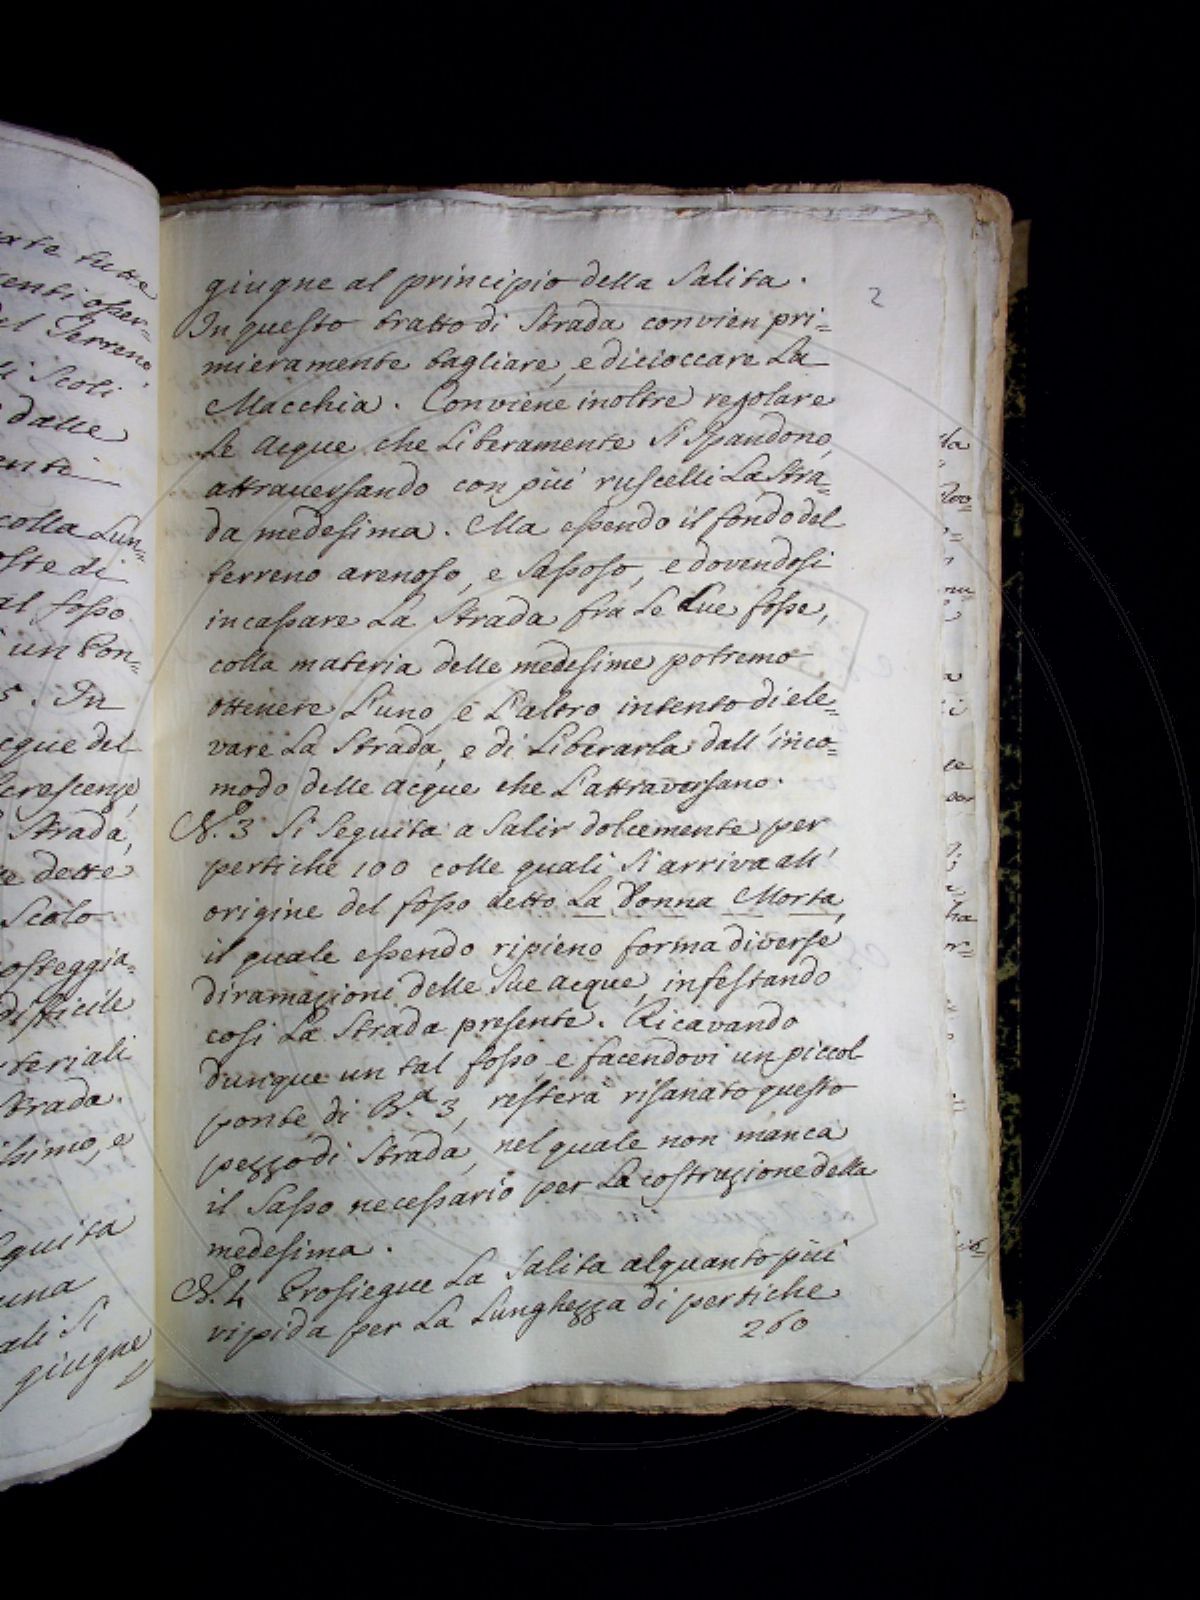 ate tutte
senti osser=
del Terreno,
li Scoli
dalle
enti
colla Lun=
oste di
al fosso
un Pon=
5. In
cque del
crescenze,
Strada,
e dette
Scolo
costeggia=
difficile
teriali
Strada.
issimo, e
eguita
una
ali si
giugne
2
giugne al principio della Salita.
In questo tratto di Strada convien pri=
mieramente tagliare, e dicioccare La
Macchia. Conviene inoltre regolare
Le Acque che Liberamente si spandono,
attraversando con più ruscelli La Stra=
da medesima. Ma essendo il fondo del
terreno arenoso, e Sassoso, e dovendosi
incassare La Strada fra Le due fosse,
colla materia delle medesime potremo
ottenere L'uno e L'altro intento di ele=
vare La Strada, e di Liberarla dall'inco=
modo delle Acque che L'attraversano.
N.º 3 Si Seguita a Salir dolcemente per
pertiche 100 colle quali si arriva all'
origine del fosso detto La Donna Morta,
il quale essendo ripieno forma diverse
diramazioni delle Sue acque, infestando
cosi La Strada presente. Ricavando
dunque un tal fosso, e facendovi un piccol
ponte di B.ª 3, resterà risanato questo
pezzo di Strada, nel quale non manca
il Sasso necessario per La costruzione della
medesima.
N.º 4 Prosiegue La Salita alquanto più
ripida per La Lunghezza di pertiche
260